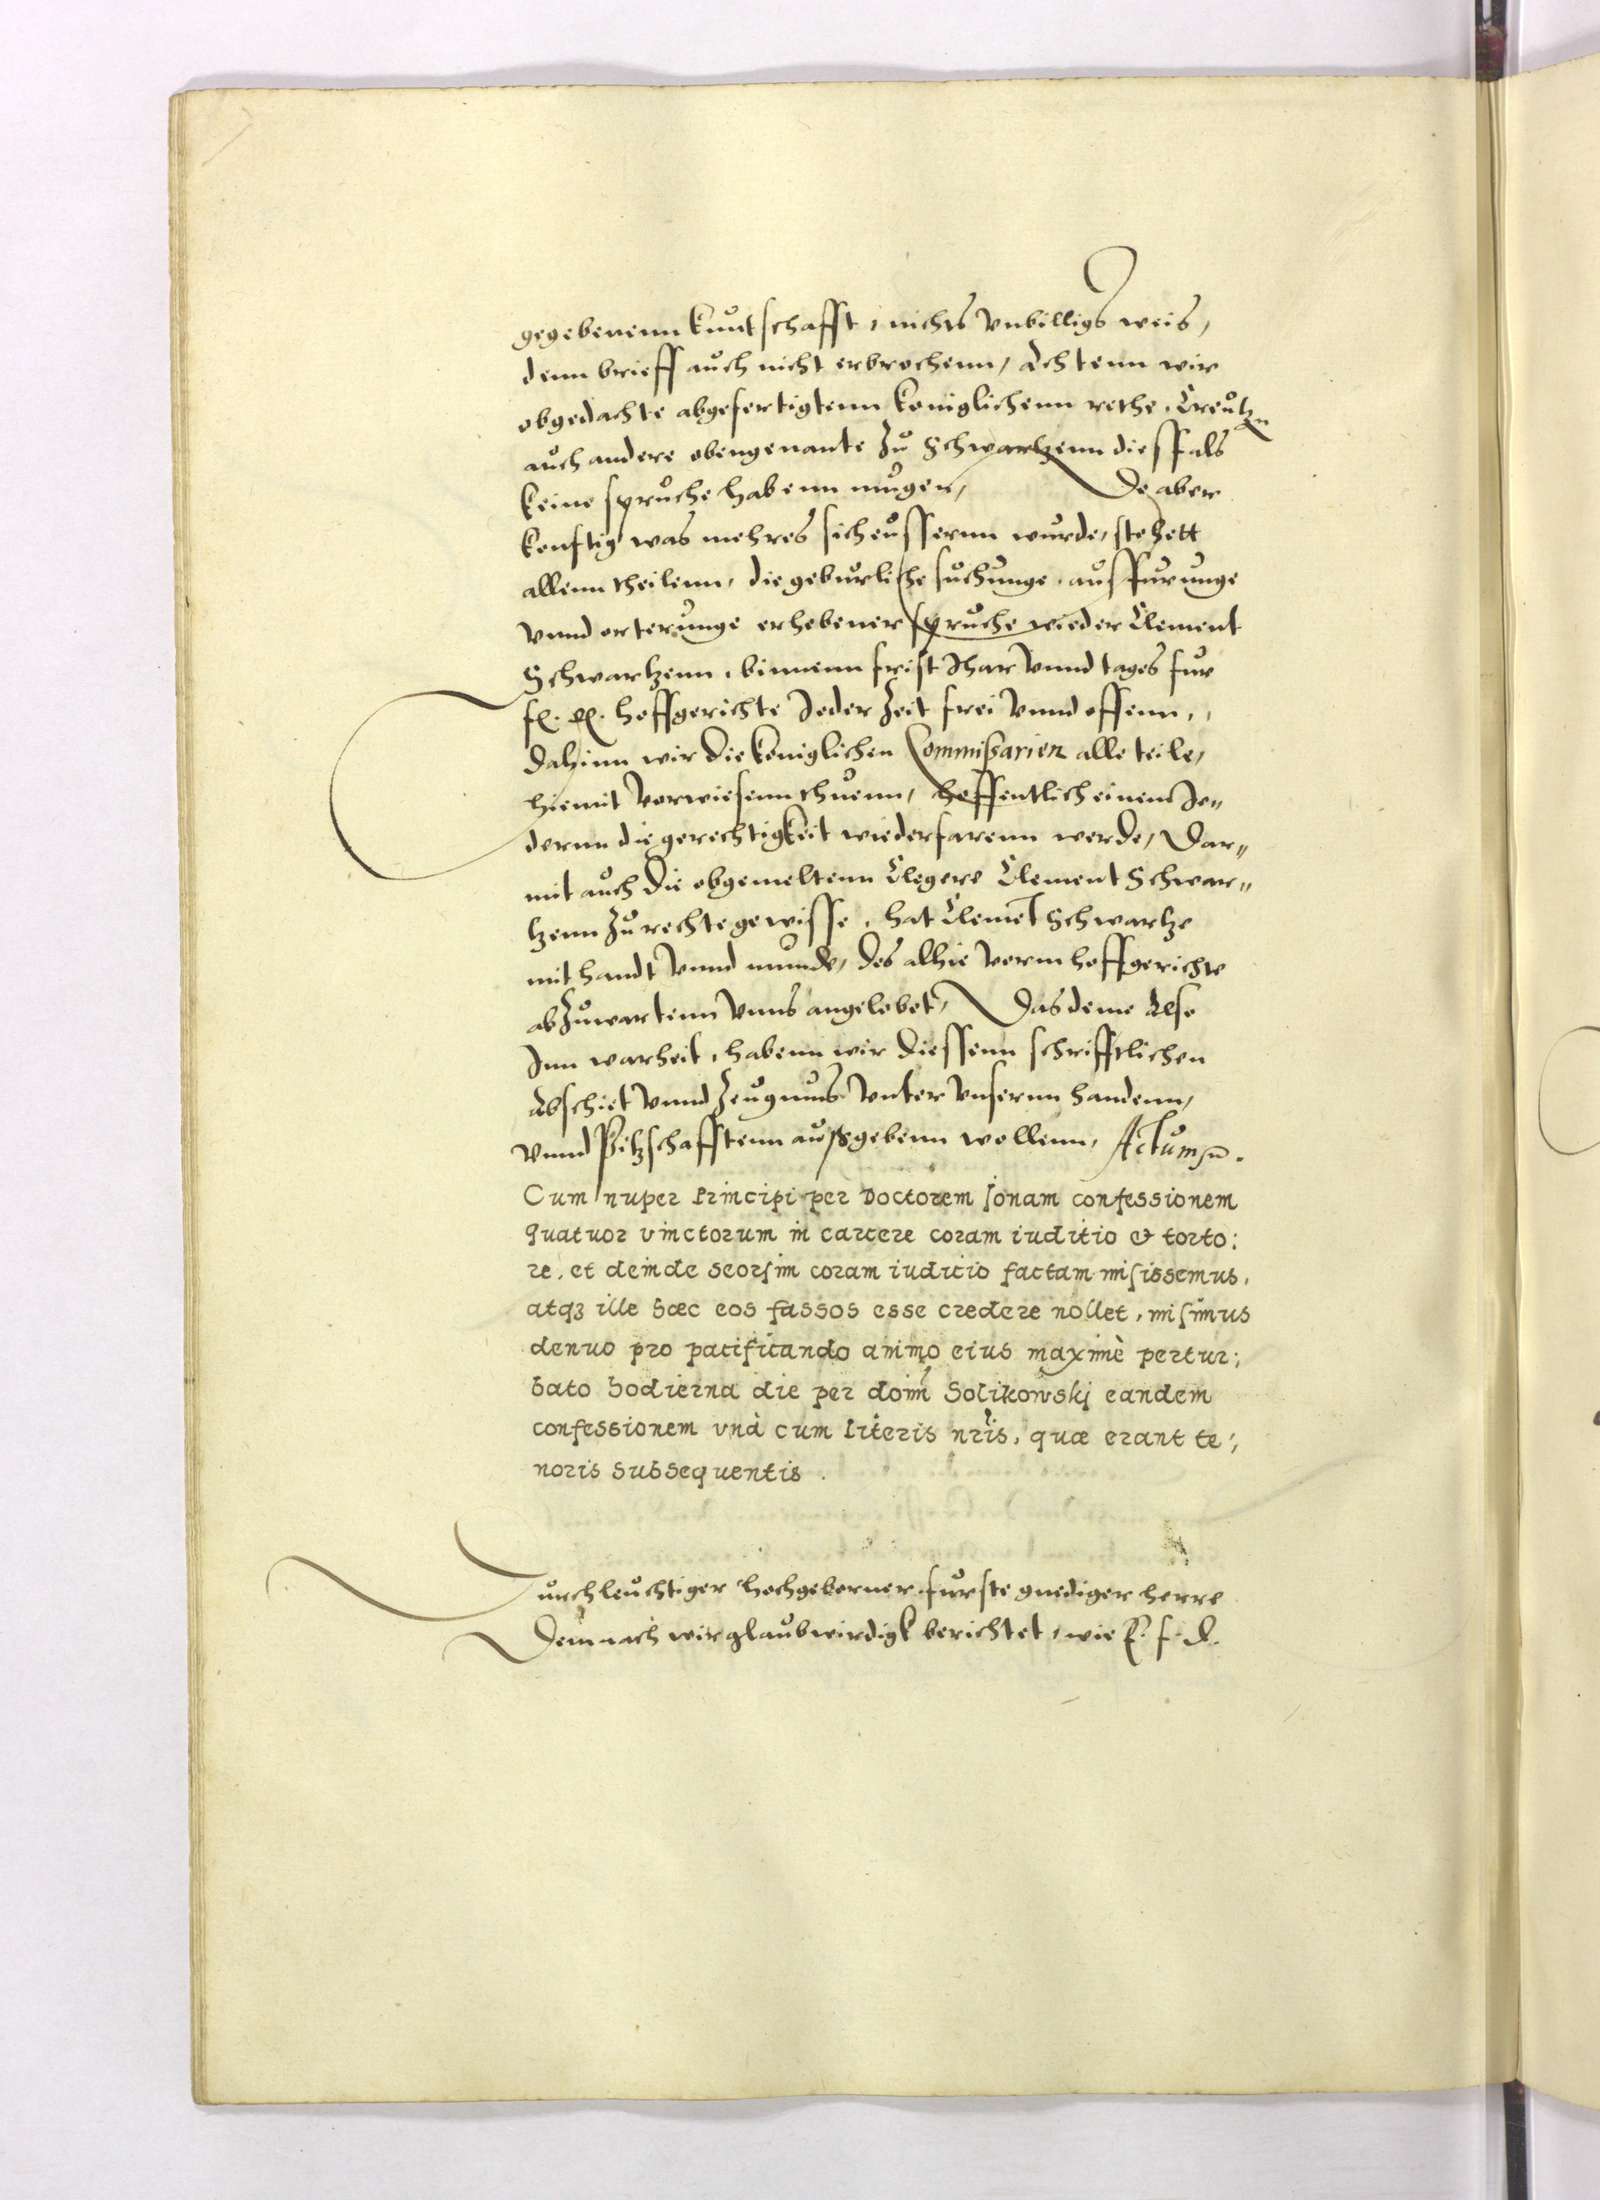 gegebenenn kuntschafft, nichts vnbilligs weis,
denn brieff auch nicht erbrochenn, Achtenn wir
obgedachte abgefertigtenn koniglichenn rethe, Creutzn
auch andere obengenante zu Schwartzenn diesfals
keine spruche habenn mugen, Do aber
kenftig was mehres sich eussernn wurde, stehett
allenn theilenn, die geburliche suchunge, ausfurunge
vnnd orterunge erhobener spruche wieder Clement
Schwartzenn, binnenn frist Jhar vnnd tages fur
hoffgerichte Jeder Zeit frei vnnd offenn,
dahinn wir die koniglichen Commissarien alle teile,
hiemit vorwiesenn thuenn, hoffentlich einem Je„
dernn die gerechtigkeit wiederfarenn werde, Dar„
mit auch die obgemeltenn Clegere Clement Schwar„
tzenn zu rechte gewisse, hat Clemēt Schwartze
mit handt vnnd munde, des alhie vorm hoffgerichte
abzuwartenn vnns angelobet, Das deme Also
Inn warheit, habenn wir diessenn schrifftlichen
Abschiet vnnd Zeugnuns vnter vnsernn handenn,
vnnd Pitzschafftenn außgebenn wollenn, Actum
Cum nuper Principi per Doctorem Jonam confessionem
quatuor vinctorum in carcere coram iuditio & torto:
re, et deinde seorsim coram iudicio factam misissemus,
atqȝ ille hæc eos fassos esse credere nollet, misimus
denuo pro pacificando animo eius maximè pertur:,
bato hodierna die per doīm Solikowskj eandem
confessionem vnà cum literis nr̄is, quæ erant te:,
noris subsequentis.
Durchleuchtiger hochgeborner furste gnediger herre
Demnach wir glaubwirdigk berichtet, wie E. f. d.